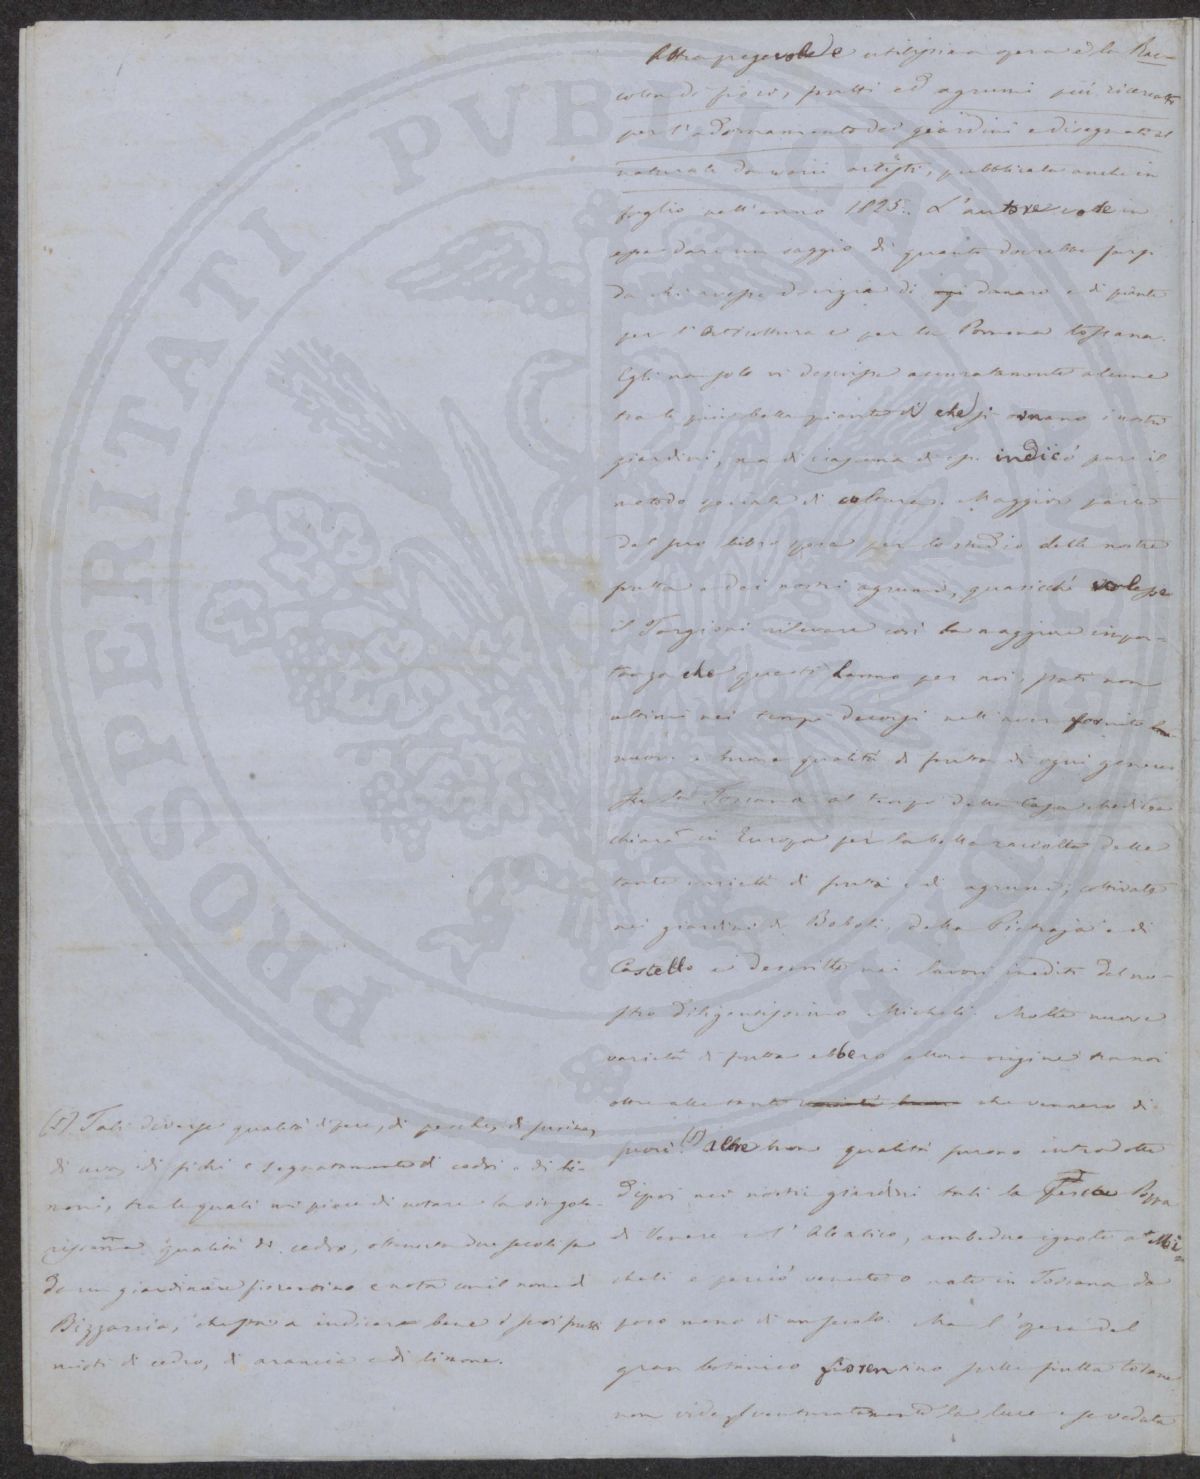 Altra pregevole e utilissima opera è la Rac-
colta di fiori, frutti ed agrumi più ricercati
per l'adornamento dei giardini e disegnati al
naturale da varii artisti, pubblicata anche in
foglio nell'anno 1825. L'autore volle in
essa dare un saggio di quanto dovrebbe farsi
da chi avesse dovizia di danaro e di piante
per l'Orticoltura e per la Pomona toscana.
Egli non solo vi descrisse accuratamente alcune
tra le più belle piante di che si ornano i nostri
giardini, ma di ciascuna di esse indicò pure il
metodo speciale di coltura. Maggior parte
del suo libro per lo studio delle nostre
frutta e dei nostri agrumi, quasicchè volesse
il Targioni rilevare così la maggiore impor-
tanza che questi hanno per noi, stati non
ultimi nei tempi decorsi nell'aver fornito
nuove e buone qualità di frutta di ogni genere.
Fu la Toscana al tempo della Casa Medicea
chiara in Europa per la bella raccolta delle
tante varietà di frutta e di agrumi, coltivate
nei giardini di Boboli, della Pietraja e di
Castello e descritte nei lavori inediti del no-
stro diligentissimo Micheli. Molte nuove
varietà di frutta ebbero allora origine tra noi
oltre alle tante varietà buone che vennero di
fuori.(1) Altre buone qualità furono introdotte
dipoi nei nostri giardini tali la Pesca Poppa
di Venere e l'Aleatico, ambedue ignote al Mi-
cheli e perciò venute o nate in Toscana da
poco meno di un secolo. Ma l'opera del
gran botanico fiorentino sulle frutta toscane
non vide sventuratamente la luce e se veduta
(1) Tali diverse qualità di pere, di pesche, di susine,
di uva, di fichi e segnatamente di cedri e di li-
moni, tra le quali mi piace di notare la singola-
rissima qualità di cedro, ottenuta due secoli fa
da un giardiniere fiorentino e nota con il nome di
Bizzarria, che a indicare bene i suoi frutti
misti di cedro, di arancia e di limone.
PROSPERITATI PUBLICAE AUGENDAE